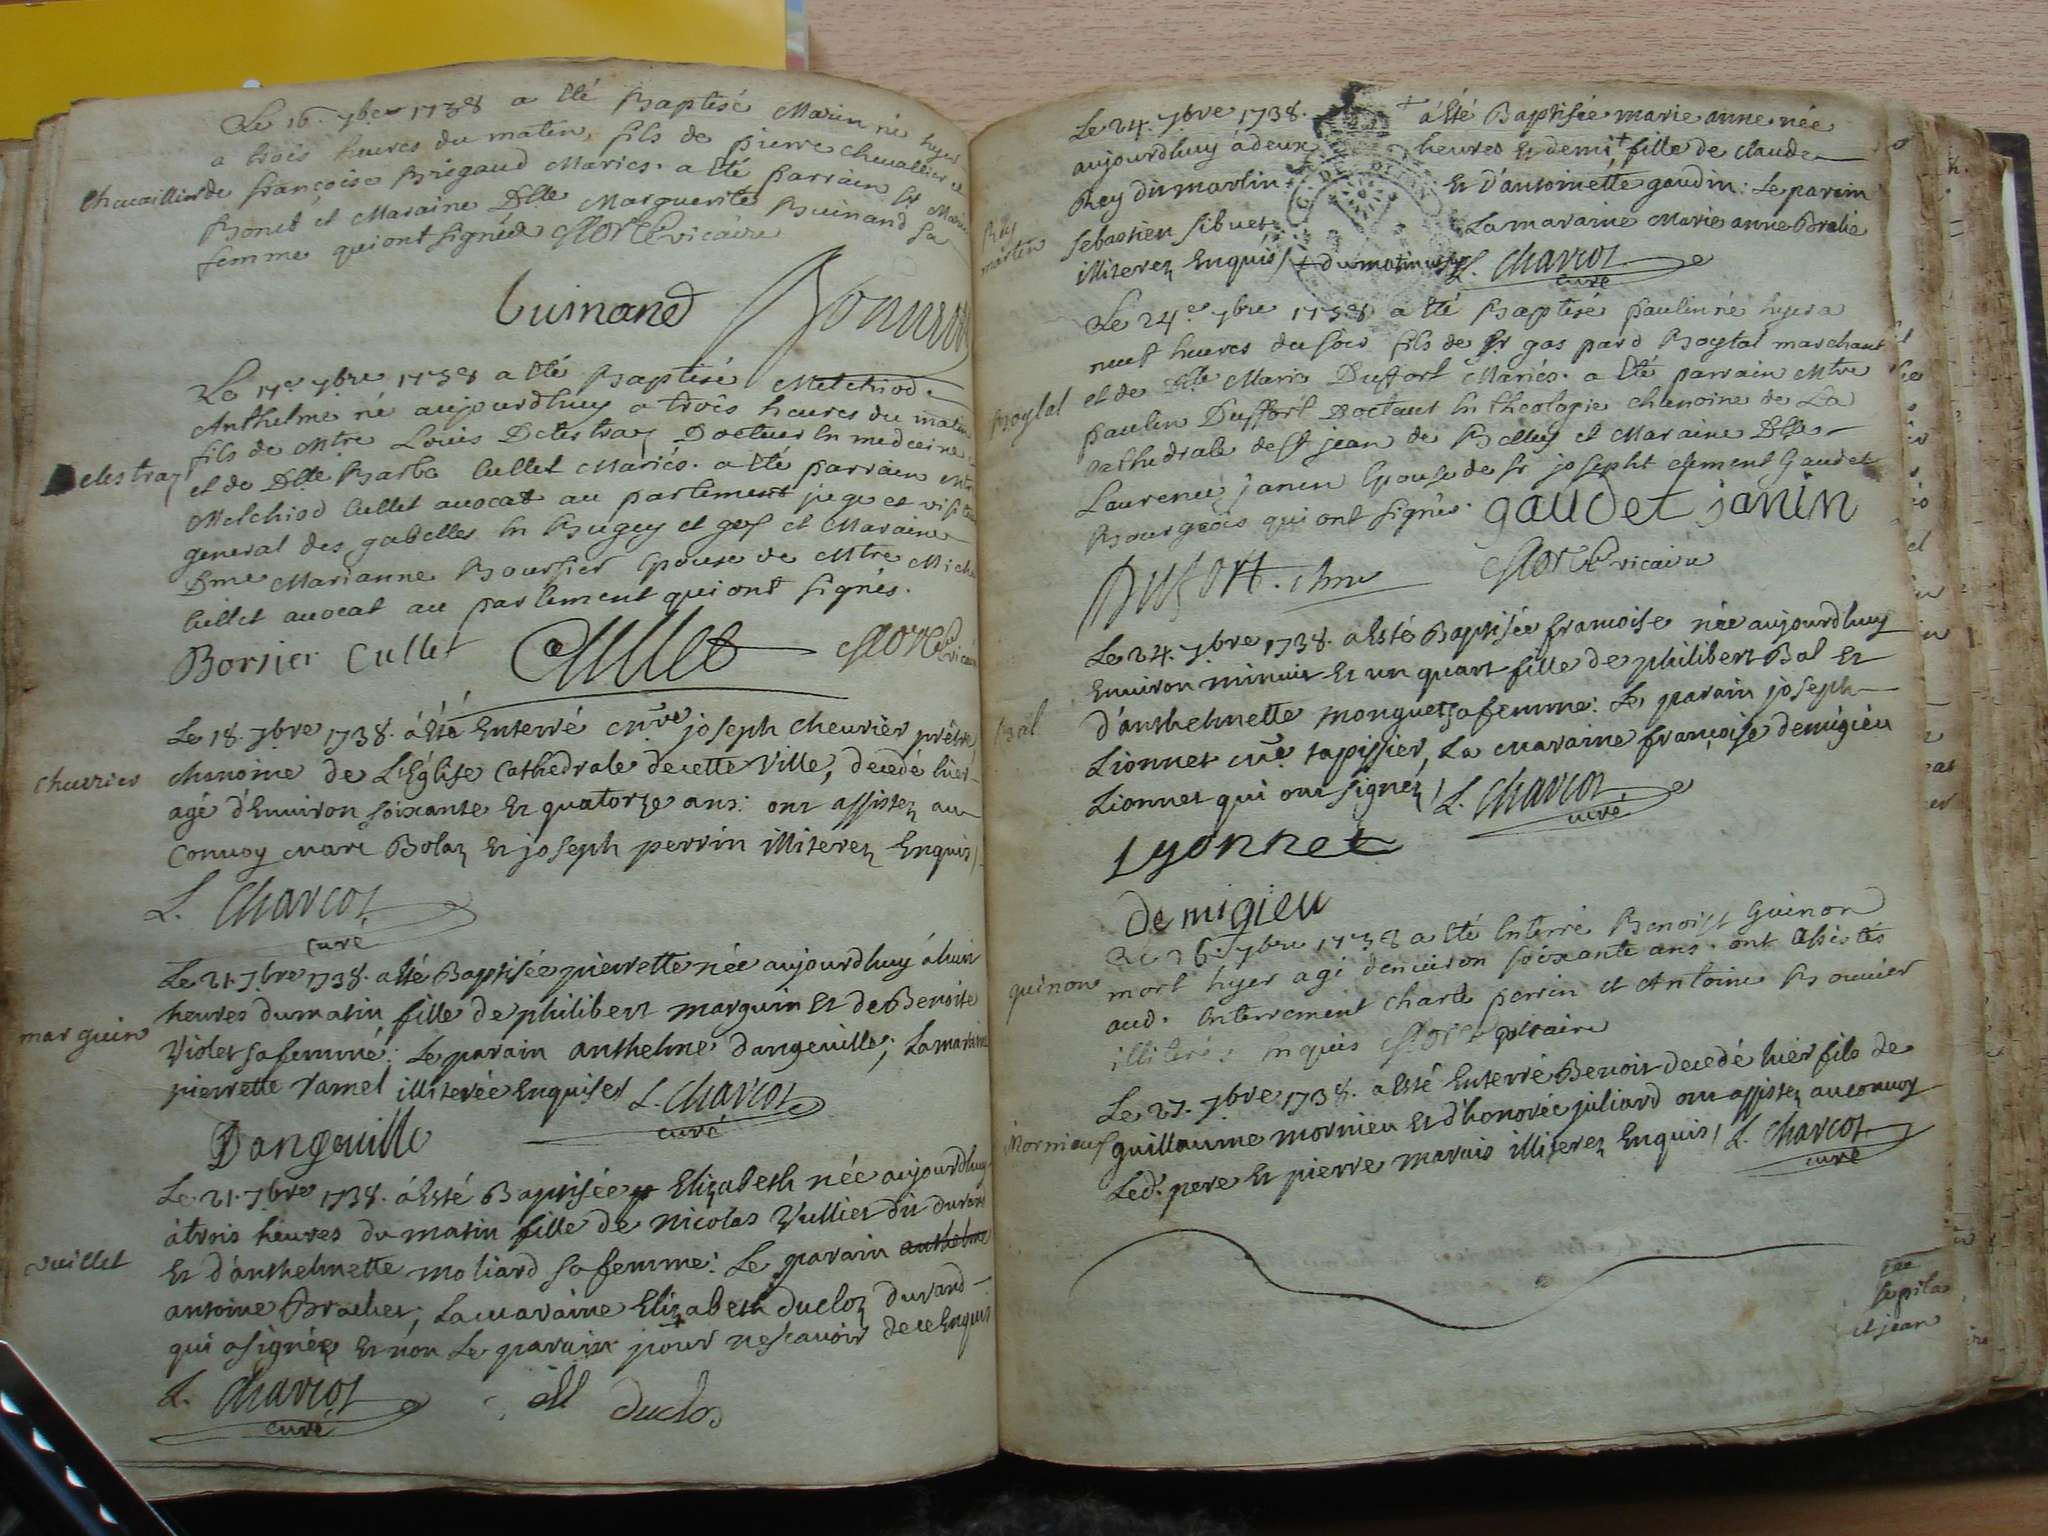 Le 16. 7bre 1738 a été Baptisé Marin né hyer
a trois heures du matin, fils de pierre chevallier et
Chevaillier
de françoise Brigaud Mariés. a été parrain Sr Marin
Bonet et Maraine Dlle Marguerite Guinand sa
femme qui ont signés vicaire
Guinand
Le 17e 7bre 1738 a été Baptisé Melchiod
Anthelme né aujourdhuy a trois heures du matin
fils de Mtre Louis Delestraz Docteur en medecine
Delestraz
et de Dlle Barbe Cullet Mariés. a été parrain Mtre
Melchiod Cullet avocat au parlement juge et visiteur
general des gabelles en Bugey et gex et Maraine
Dme Marianne Boursier Epouse de Mtre Miche
Cullet avocat au parlement qui ont signés.
Borsier Cullet Cullet vicaire
Le 18. 7bre 1738. a été Enterré mre joseph cheurier prêtre
cheurier
chanoine de L'Eglise Cathedrale de cette Ville, decedé hier
agé d'Environ soixante Et quatorze ans: ont assistez au
Convoy marc Bolaz Et joseph perrin illiterez Enquis /.
L. Charcot
curé
Le 21. 7bre 1738. a été Baptisée pierrette née aujourdhuy á huit
heures du matin fille de philibert marguin Et de Benoite
marguin
Violet sa femme: Le parain anthelme dangeville; La maraine
pierrette ramel illiterée Enquises L. Charcot
curé
Dangeville
Le 21. 7bre 1738. á Esté Baptisée Elizabeth née aujourdhuy
á trois heures du matin fille de nicolas Vulliet dit durand
vuillet
Et d'anthelmette moliard sa femme: Le parain anthelme
antoine Brachet; La maraine Elizabeth Ducloz durand
qui a signée Et non Le parain pour ne scavoir de ce Enquis
L. Charcot
curé
Duclos
Le 24. 7bre 1738. á Été Baptisée marie anne née
aujourdhuy á deux heures Et demi + fille de claude
Rey dit martin Et D'antoinette gaudin: Le parein
Rey
martin
Sebastien Sibuet La maraine Marie anne Bralie
illiterez Enquis / + du matin L. Charcot
curé
Le 24e 7bre 1738 a été Baptisé paulin né hyer a
neuf heures du soir fils de Sr gaspard Boytal marchant
et de Dlle Marie Duffort Mariés. a été parrain Mtre
Boytal
paulin Duffort Docteur en theologie chanoine de La
cathedrale de St jean de Belley et Maraine Dlle
Laurence janin Epouse de Sr josepht clement Gaudet
Bourgeois qui ont signés. gaudet janin
Dufort. chne vicaire
Le 24. 7bre 1738. a Esté Baptisée francoise née aujourdhuy
Environ minuit Et un quart fille de philibert Bal Et
Bal
d'anthelmette monguet sa femme: Le parain joseph
Lionnet me tapissier, La maraine françoise demigieu
Lionnet qui ont signez / L. Charcot
curé
Lyonnet
De migieu
Le 26. 7bre 1738 a été Enterré Benoist Guinon
guinon
mort hyer agé denviron soixante ans. ont assistés
aud. Enterrement charle perrin et Antoine Bouvier
illiterés Enquis vicaire
Le 27. 7bre 1738. a Esté Enterré Benoit decedé hier fils de
Mornieux
guillaume mornieu Et d'honorée juliard ont assistez au convoy
Led. pere Et pierre marais illiterez Enquis / L. Charcot
curé
et jean